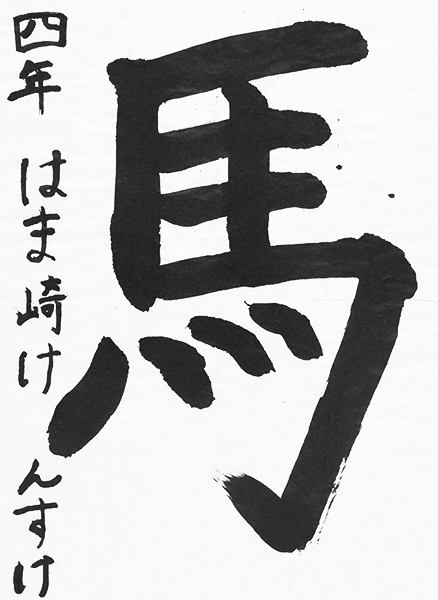 馬
四年 はま崎けんすけ